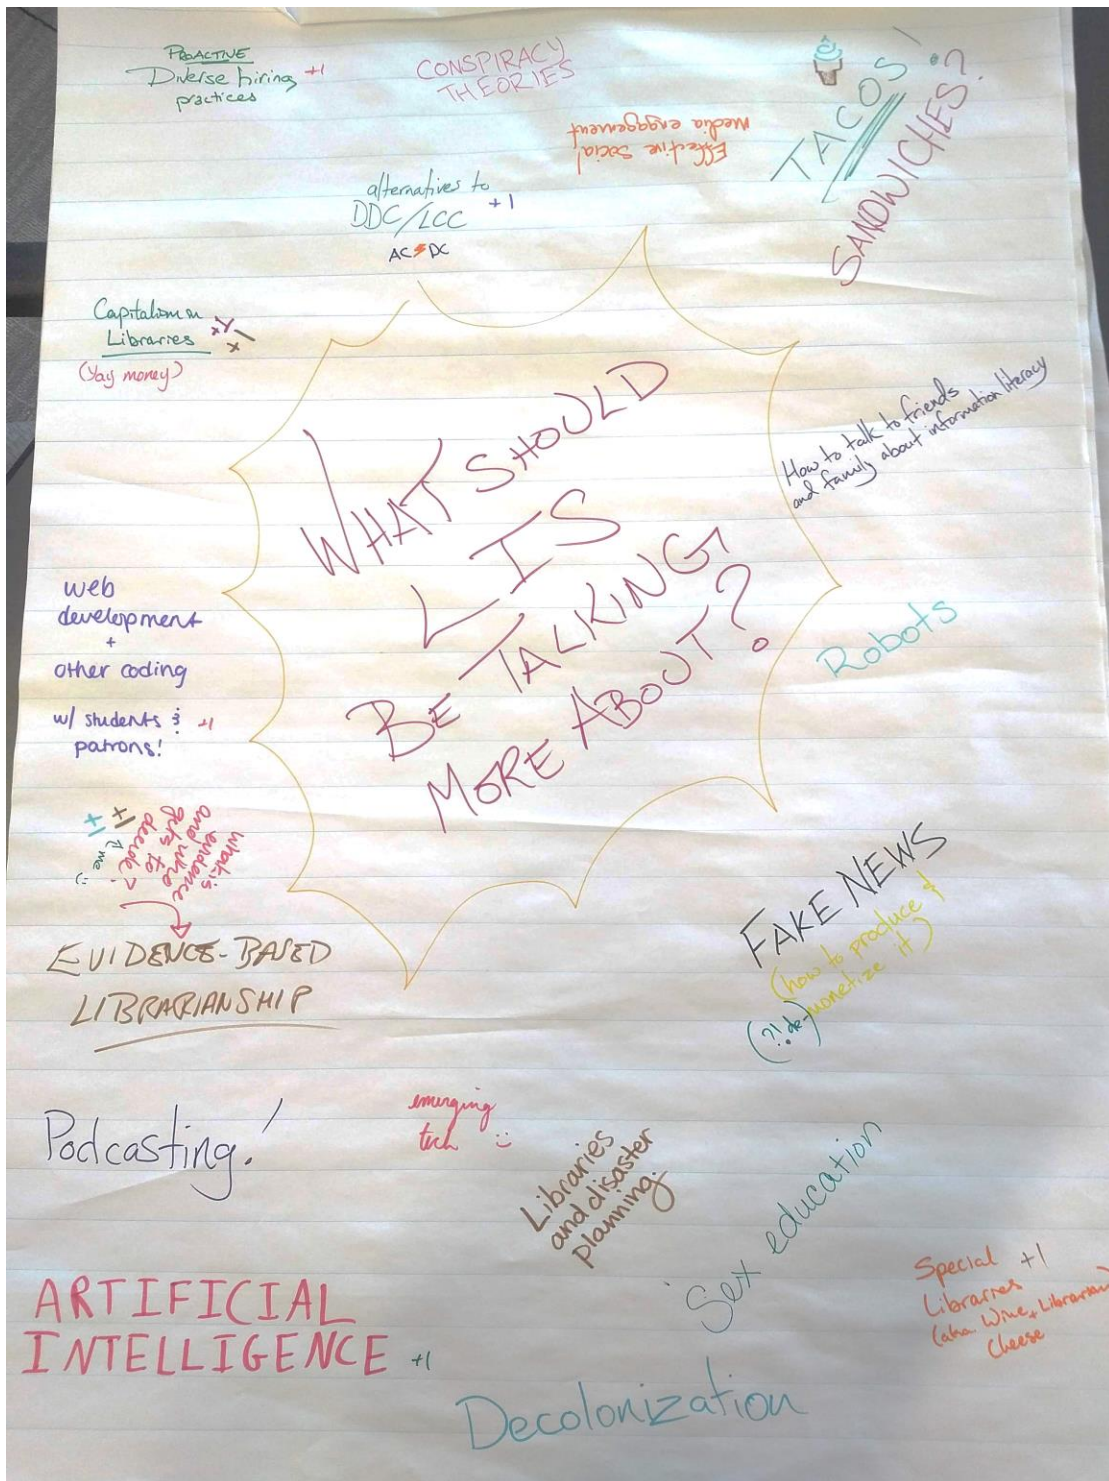 PROACTIVE
Diverse hiring +1
practices
CONSPIRACY
THEORIES
Effective Social
Media engagement
TACOS!
SANDWICHES?
alternatives to
DDC/LCC +1
AC⚡DC
Capitalism in
Libraries
(Yay money)
WHAT SHOULD
LIS
BE TALKING
MORE ABOUT?
How to talk to friends
and family about information literacy
web
development
+
other coding
w/ students &
patrons!
+1
Robots
what is
evidence
and who
gets to
decide?
+1
+1
me
:)
EVIDENCE-BASED
LIBRARIANSHIP
FAKE NEWS
(how to produce &
monetize it)
(?! de-)
Podcasting!
emerging
tech :)
Libraries
and disaster
planning.
Sex education
Special +1
Libraries
(aka. Wine + Librarian)
Cheese
ARTIFICIAL
INTELLIGENCE +1
Decolonization